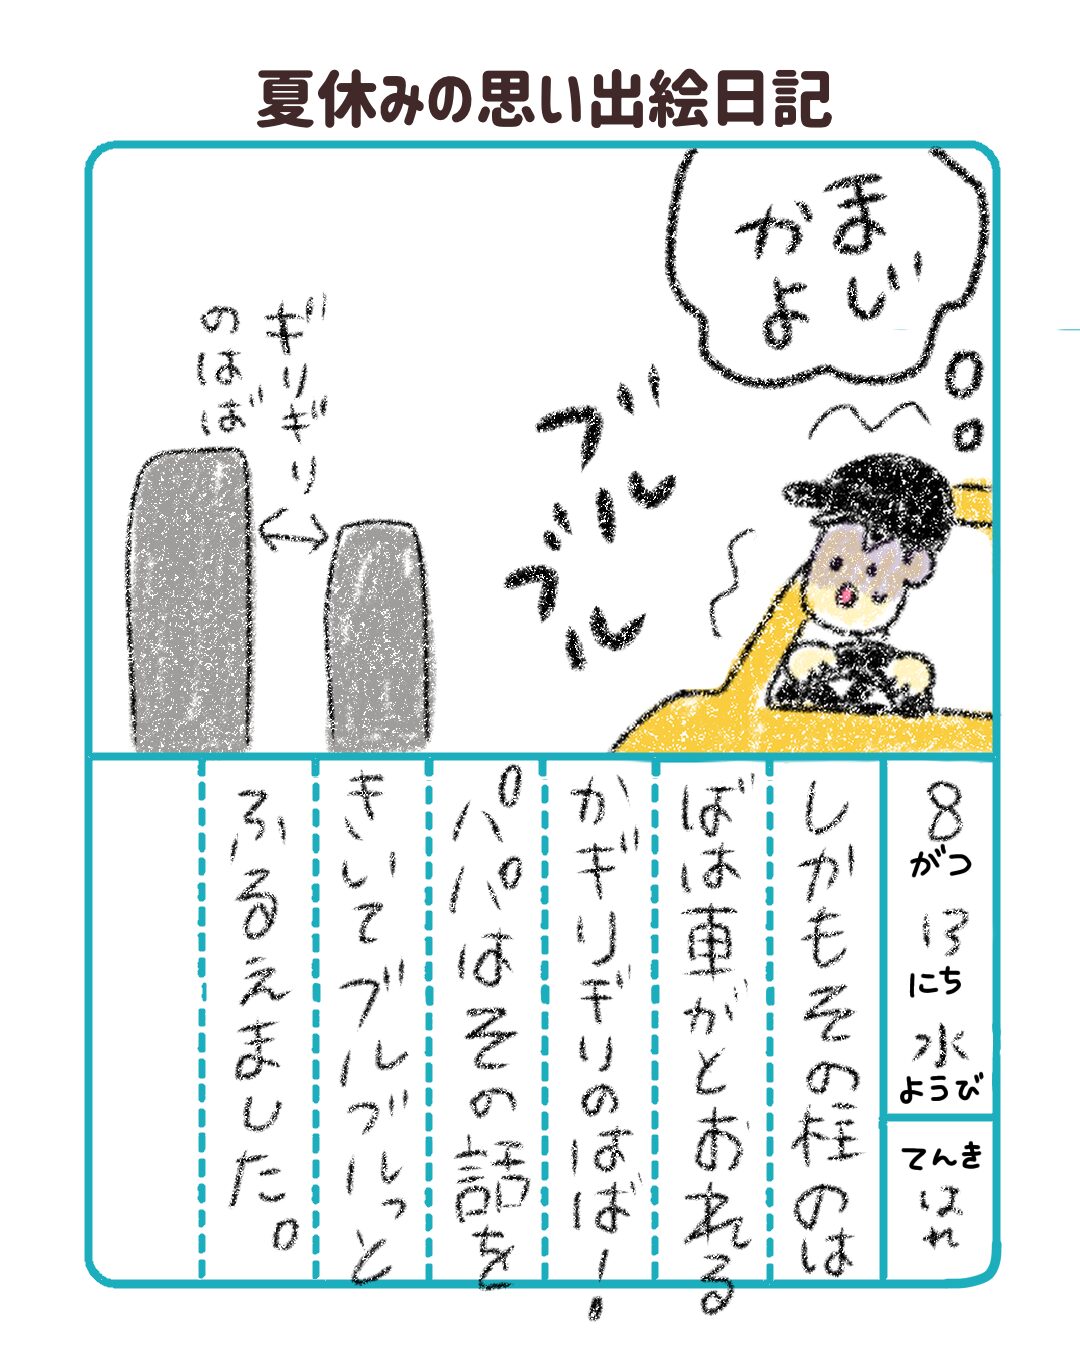 夏休みの思い出絵日記
まじ
かよ
ギリギリ
のはば
ブルブル
8がつ13にち水ようび
てんきはれ
しかもその柱のは
ばは車がとおれる
かギリギリのはば！
パパはその話を
きいてブルブルっと
ふるえました。